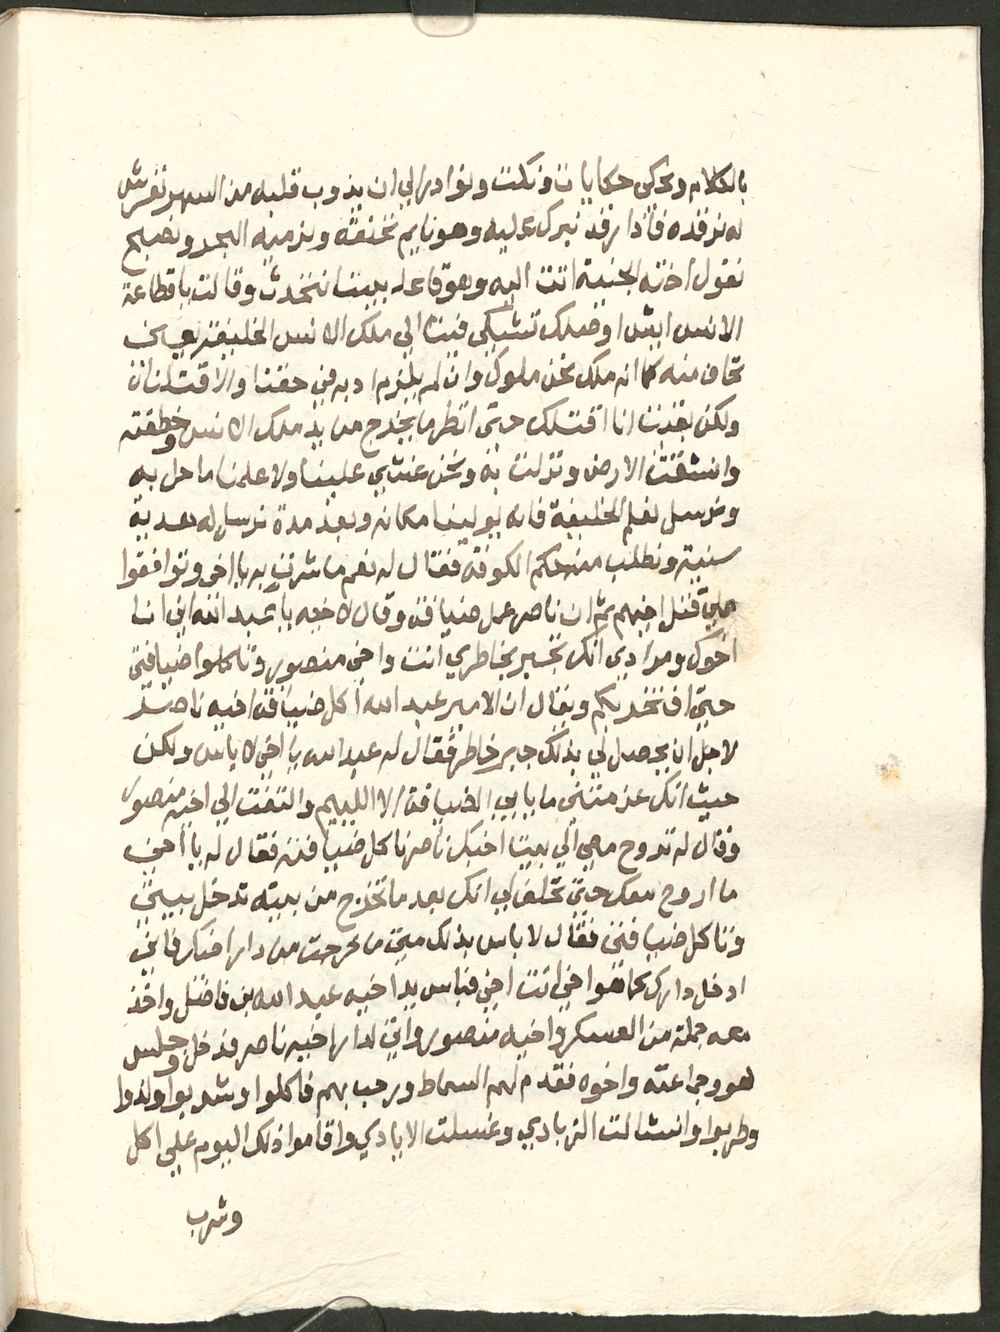 بالكلام ونحكي حكايات ونكت ونوادر الي ان يذوب قلبه من السهر ونفرش
له نرقده فاذا رقد نبرك عليه وهو نايم نخنقه ونرميه البحر ونصبح
نقول اخته الجنية اتت اليه وهو قاعد بيننا نتحدث وقالت يا قطاعة
الانس ايش اوصلك تشتكي فينا الي ملك الانس الخليفة
تخاف منه كما انه ملك نحن ملوك وان لم يلزم ادبه في حقنا والا قتلناه
ولكن بقيت انا اقتلك حتى انظر ما يخرج من يد ملك الانس وخطفته
وانشقت الارض ونزلت به ونحن غشي علينا ولا علمنا ما حل به
ونرسل نعلم الخليفة فانه يولينا مكانه وبعد مدة نرسل له هدية
سنية ونطلب منه حكم الكوفة فقال له نعم ما شرت به يا اخي وتوافقوا
علي قتل اخيهم ثم ان ناصر عمل ضيافة وقال لاخيه يا عبد الله اني انا
اخوك ومرادي انك تجبر بخاطري انت واخي منصور وتاكلوا ضيافتي
حتي افتخر بكم ويقال ان الامير عبد الله اكل ضيافة اخيه ناصر
لاجل ان يحصل لي بذلك جبر خاطر فقال له عبد الله يا اخي لا باس ولكن
حيث انك عزمتني ما يابي الضيافة الا اللييم والتفت الي اخيه منصور
وقال له تروح معي الي بيت اخيك ناصر ناكل ضيافته فقال له يا اخي
ما اروح معك حتي تحلف لي انك بعد ما تخرج من بيته تدخل بيتي
وتاكل ضيافتي فقال لا باس بذلك متي ما خرجت من دار اخيك فاني
ادخل دارك كما هو اخي انت اخي فباس يد اخيه عبد الله بن فاضل واخذ
معه جملة من العسكر واخيه منصور واتي لدار اخيه ناصر فدخل وجلس
هو وجماعته واخوه فقدم لهم السماط ورحب بهم فاكلوا وشربوا ولذوا
وطربوا وانشالت الزبادي وغسلت الايادي واقاموا ذلك اليوم علي اكل
وشرب